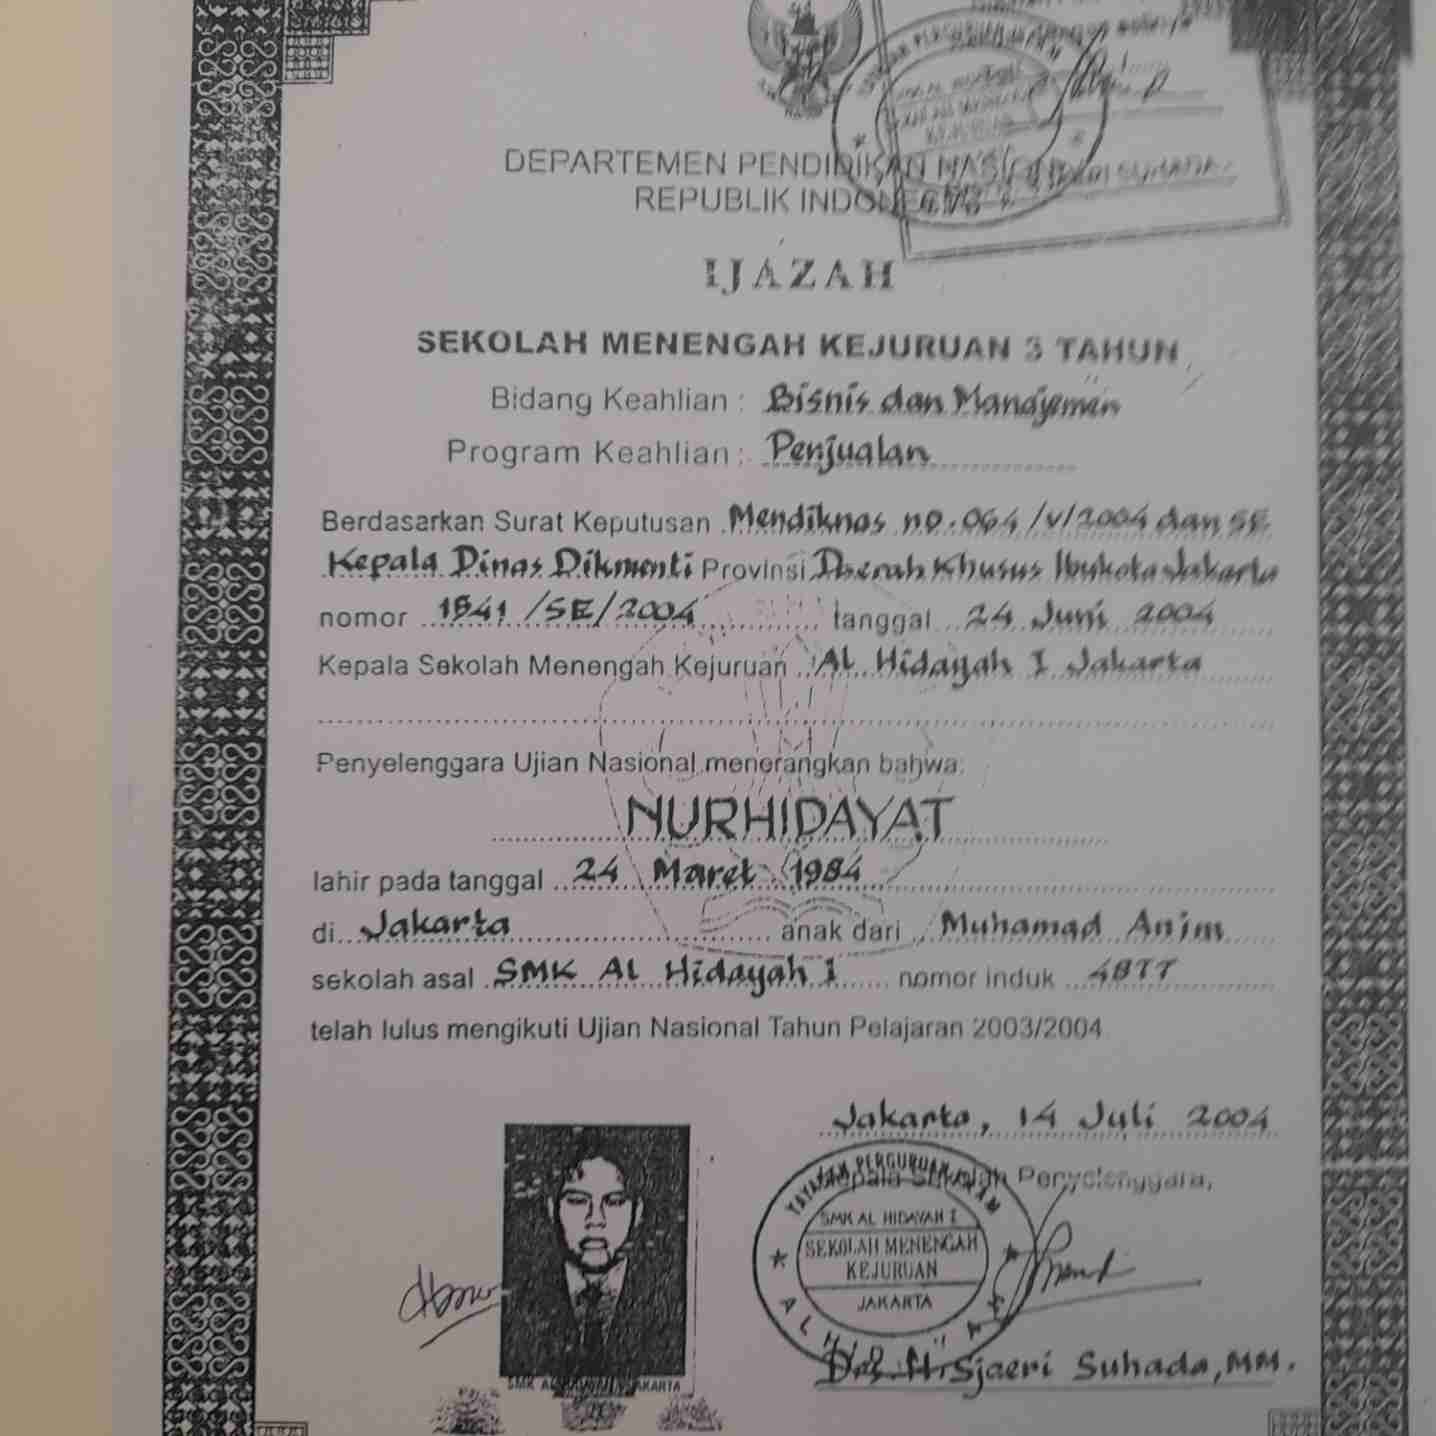 DEPARTEMEN PENDIDIKAN NASIONAL
REPUBLIK INDONESIA
IJAZAH
SEKOLAH MENENGAH KEJURUAN 3 TAHUN
Bidang Keahlian : Bisnis dan Manajemen
Program Keahlian : Penjualan
Berdasarkan Surat Keputusan Mendiknas no. 064/V/2004 dan SE
Kepala Dinas Dikmenti Provinsi Daerah Khusus Ibukota Jakarta
nomor 1841/SE/2004 tanggal 24 Juni 2004
Kepala Sekolah Menengah Kejuruan AL Hidayah I Jakarta
Penyelenggara Ujian Nasional menerangkan bahwa:
NURHIDAYAT
lahir pada tanggal 24 Maret 1984
di Jakarta anak dari Muhamad Anim
sekolah asal SMK AL Hidayah I nomor induk
telah lulus mengikuti Ujian Nasional Tahun Pelajaran 2003/2004
Jakarta, 14 Juli 2004
Kepala Sekolah Penyelenggara,
YAYASAN PERGURUAN ISLAM
SMK AL HIDAYAH I
SEKOLAH MENENGAH
KEJURUAN
JAKARTA
Drs. H. Sjaeri Suhada, MM.